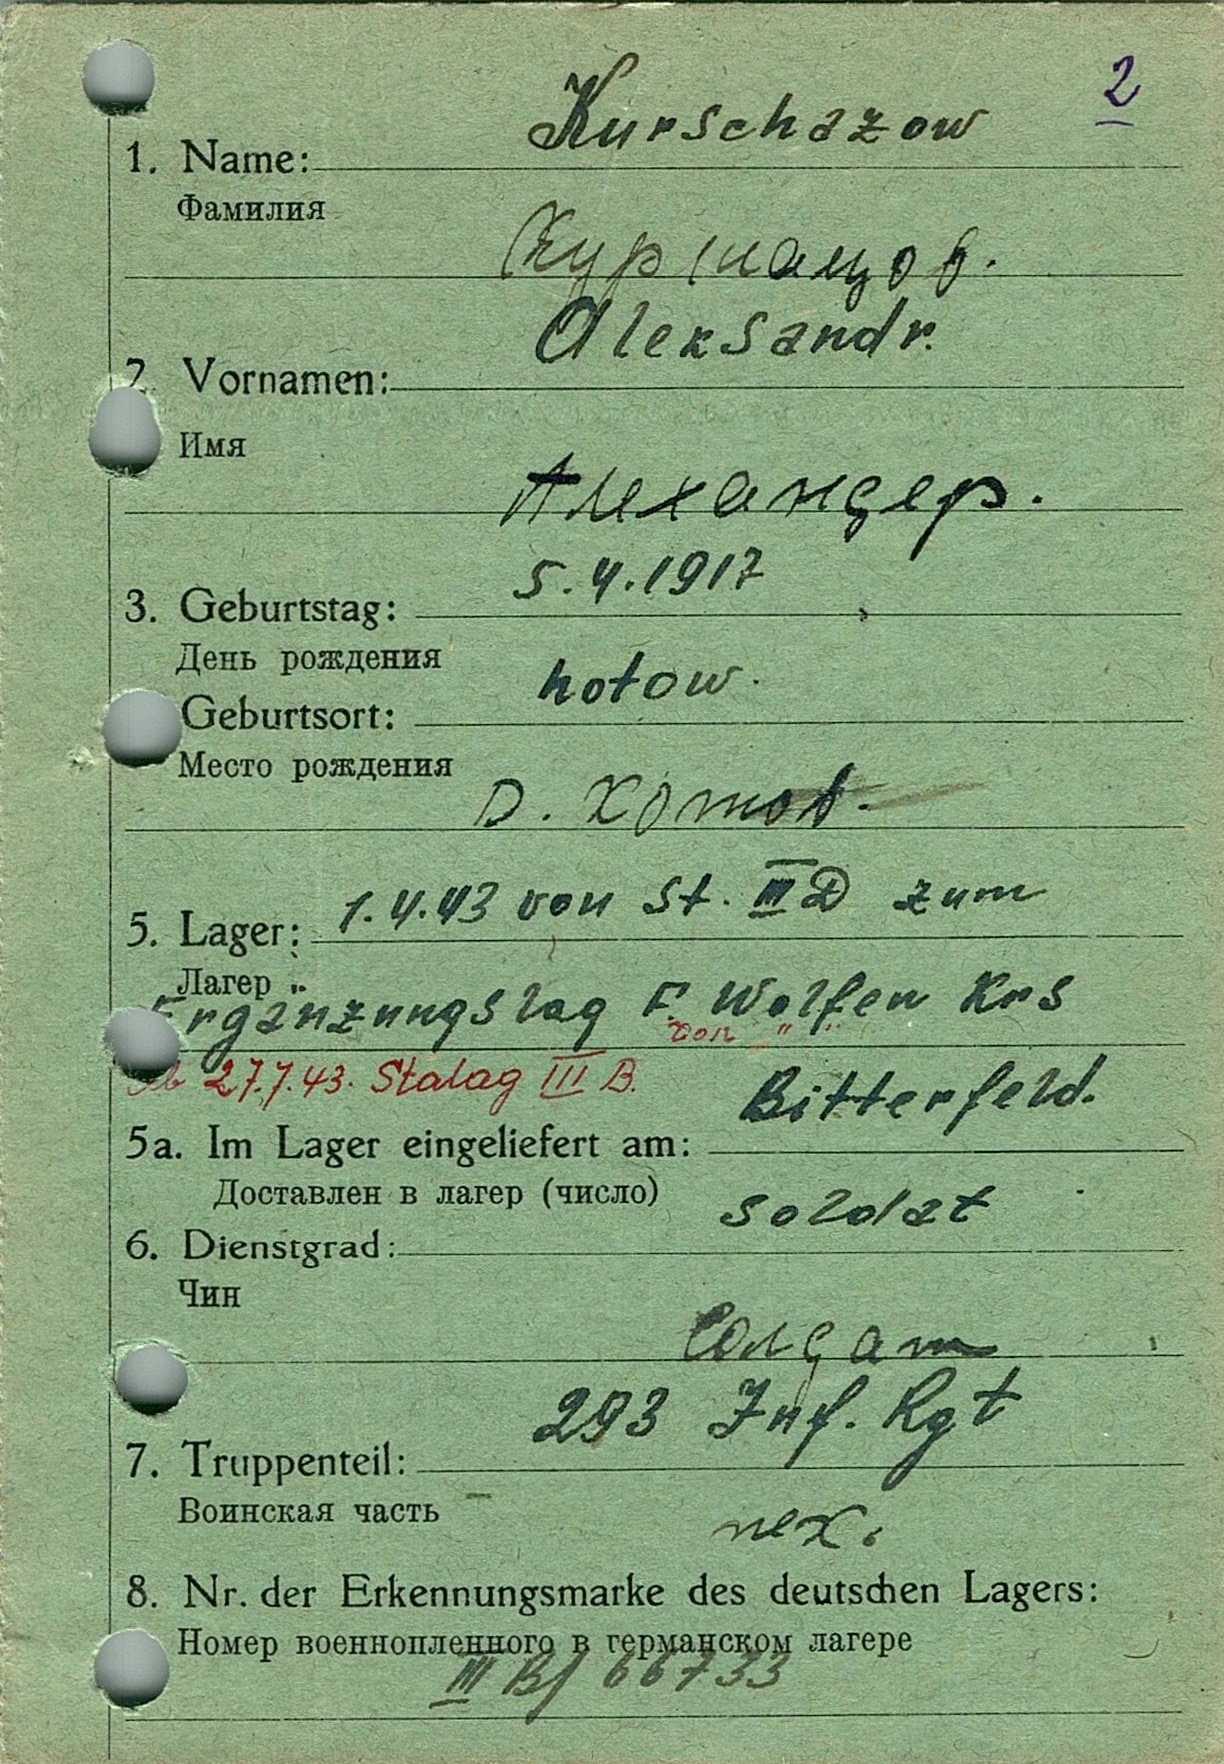 2
Kurschazow
1. Name:
Фамилия
Куршацов.
Aleksandr.
2. Vornamen:
Имя
Алехандер.
5.4.1917
3. Geburtstag:
День рождения
hotow.
Geburtsort:
Место рождения
D. Хотов.
5. Lager: 1.4.43 von St. III D zum
Лагер
Ergänzungslag F. Wolfen Krs
von " "
ab 27.7.43. Stalag III B.
Bitterfeld.
5a. Im Lager eingeliefert am:
Доставлен в лагер (число)
Soldat
6. Dienstgrad:
Чин
Солдат
293 Inf. Rgt
7. Truppenteil:
Воинская часть
пех.
8. Nr. der Erkennungsmarke des deutschen Lagers:
Номер военнопленного в германском лагере
III B/ 66733